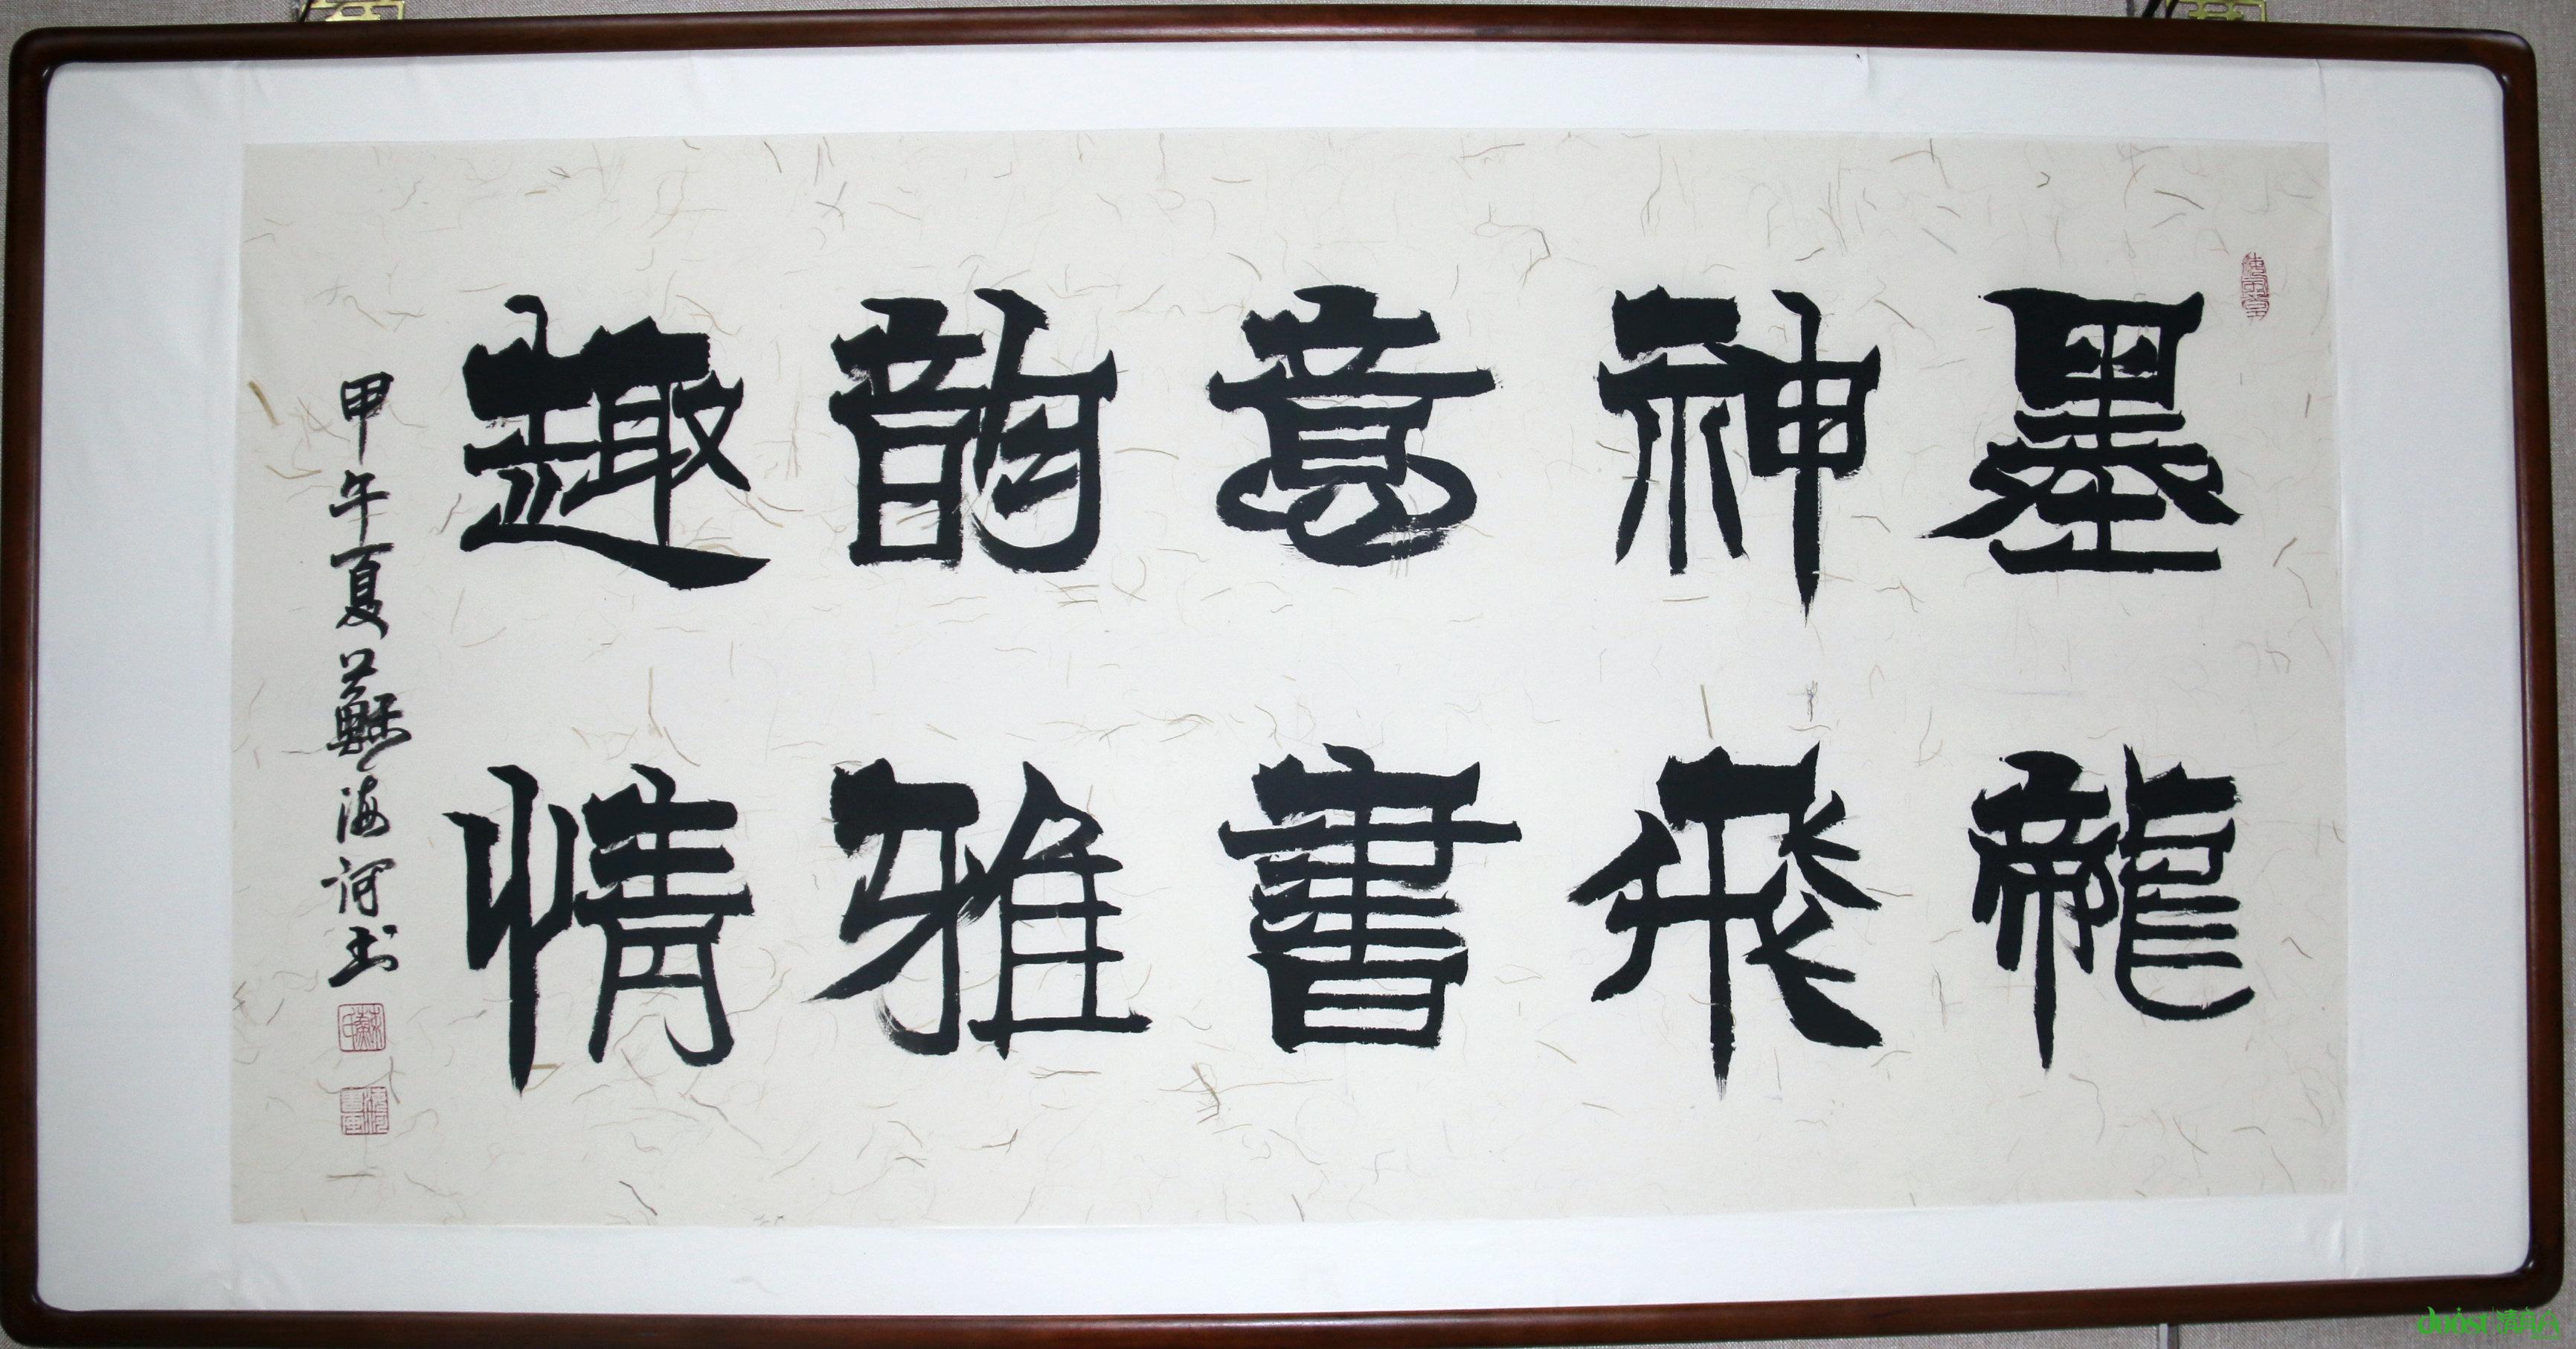 墨龍
神飛
意書
韵雅
趣情
甲午夏蘇海河书